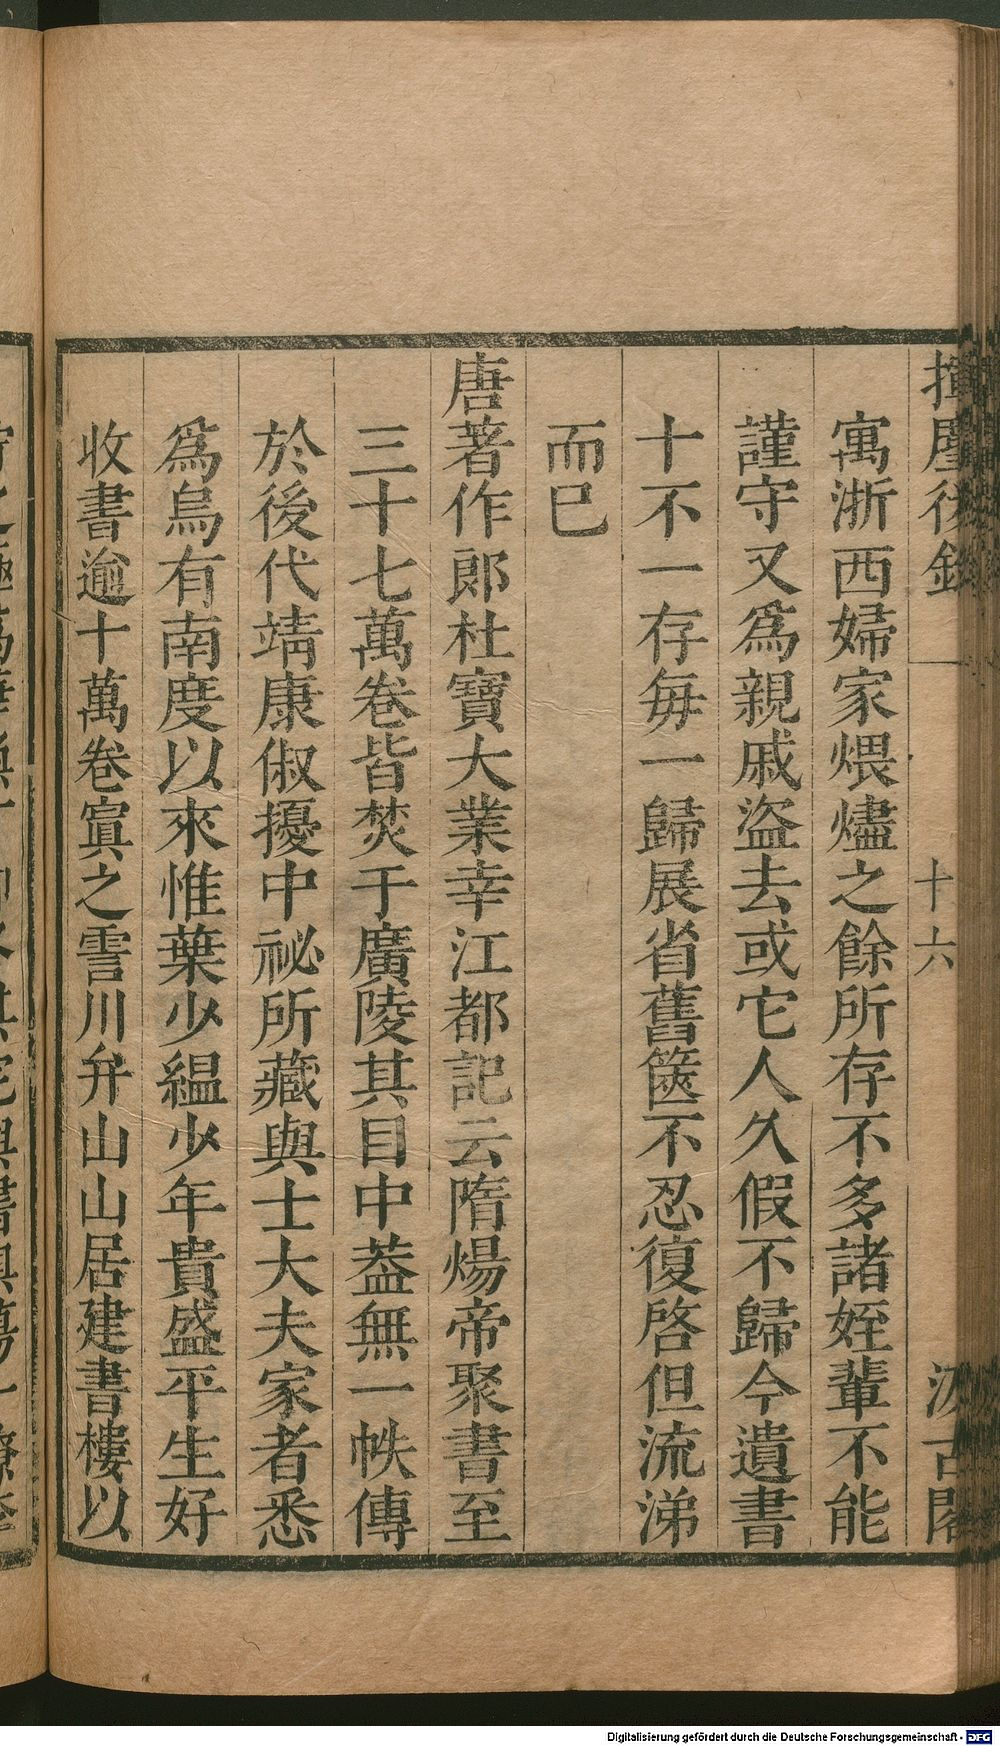 揮麈後錄
十六
汲古閣
寓浙西婦家煨燼之餘所存不多諸姪輩不能
謹守又爲親戚盜去或它人久假不歸今遺書
十不一存每一歸展省舊篋不忍復啓但流涕
而已
唐著作郎杜寶大業幸江都記云隋煬帝聚書至
三十七萬卷皆焚于廣陵其目中葢無一帙傳
於後代靖康俶擾中祕所藏與士大夫家者悉
爲烏有南度以來惟葉少縕少年貴盛平生好
收書逾十萬卷寘之霅川弁山山居建書樓以
Digitalisierung gefördert durch die Deutsche Forschungsgemeinschaft - DFG